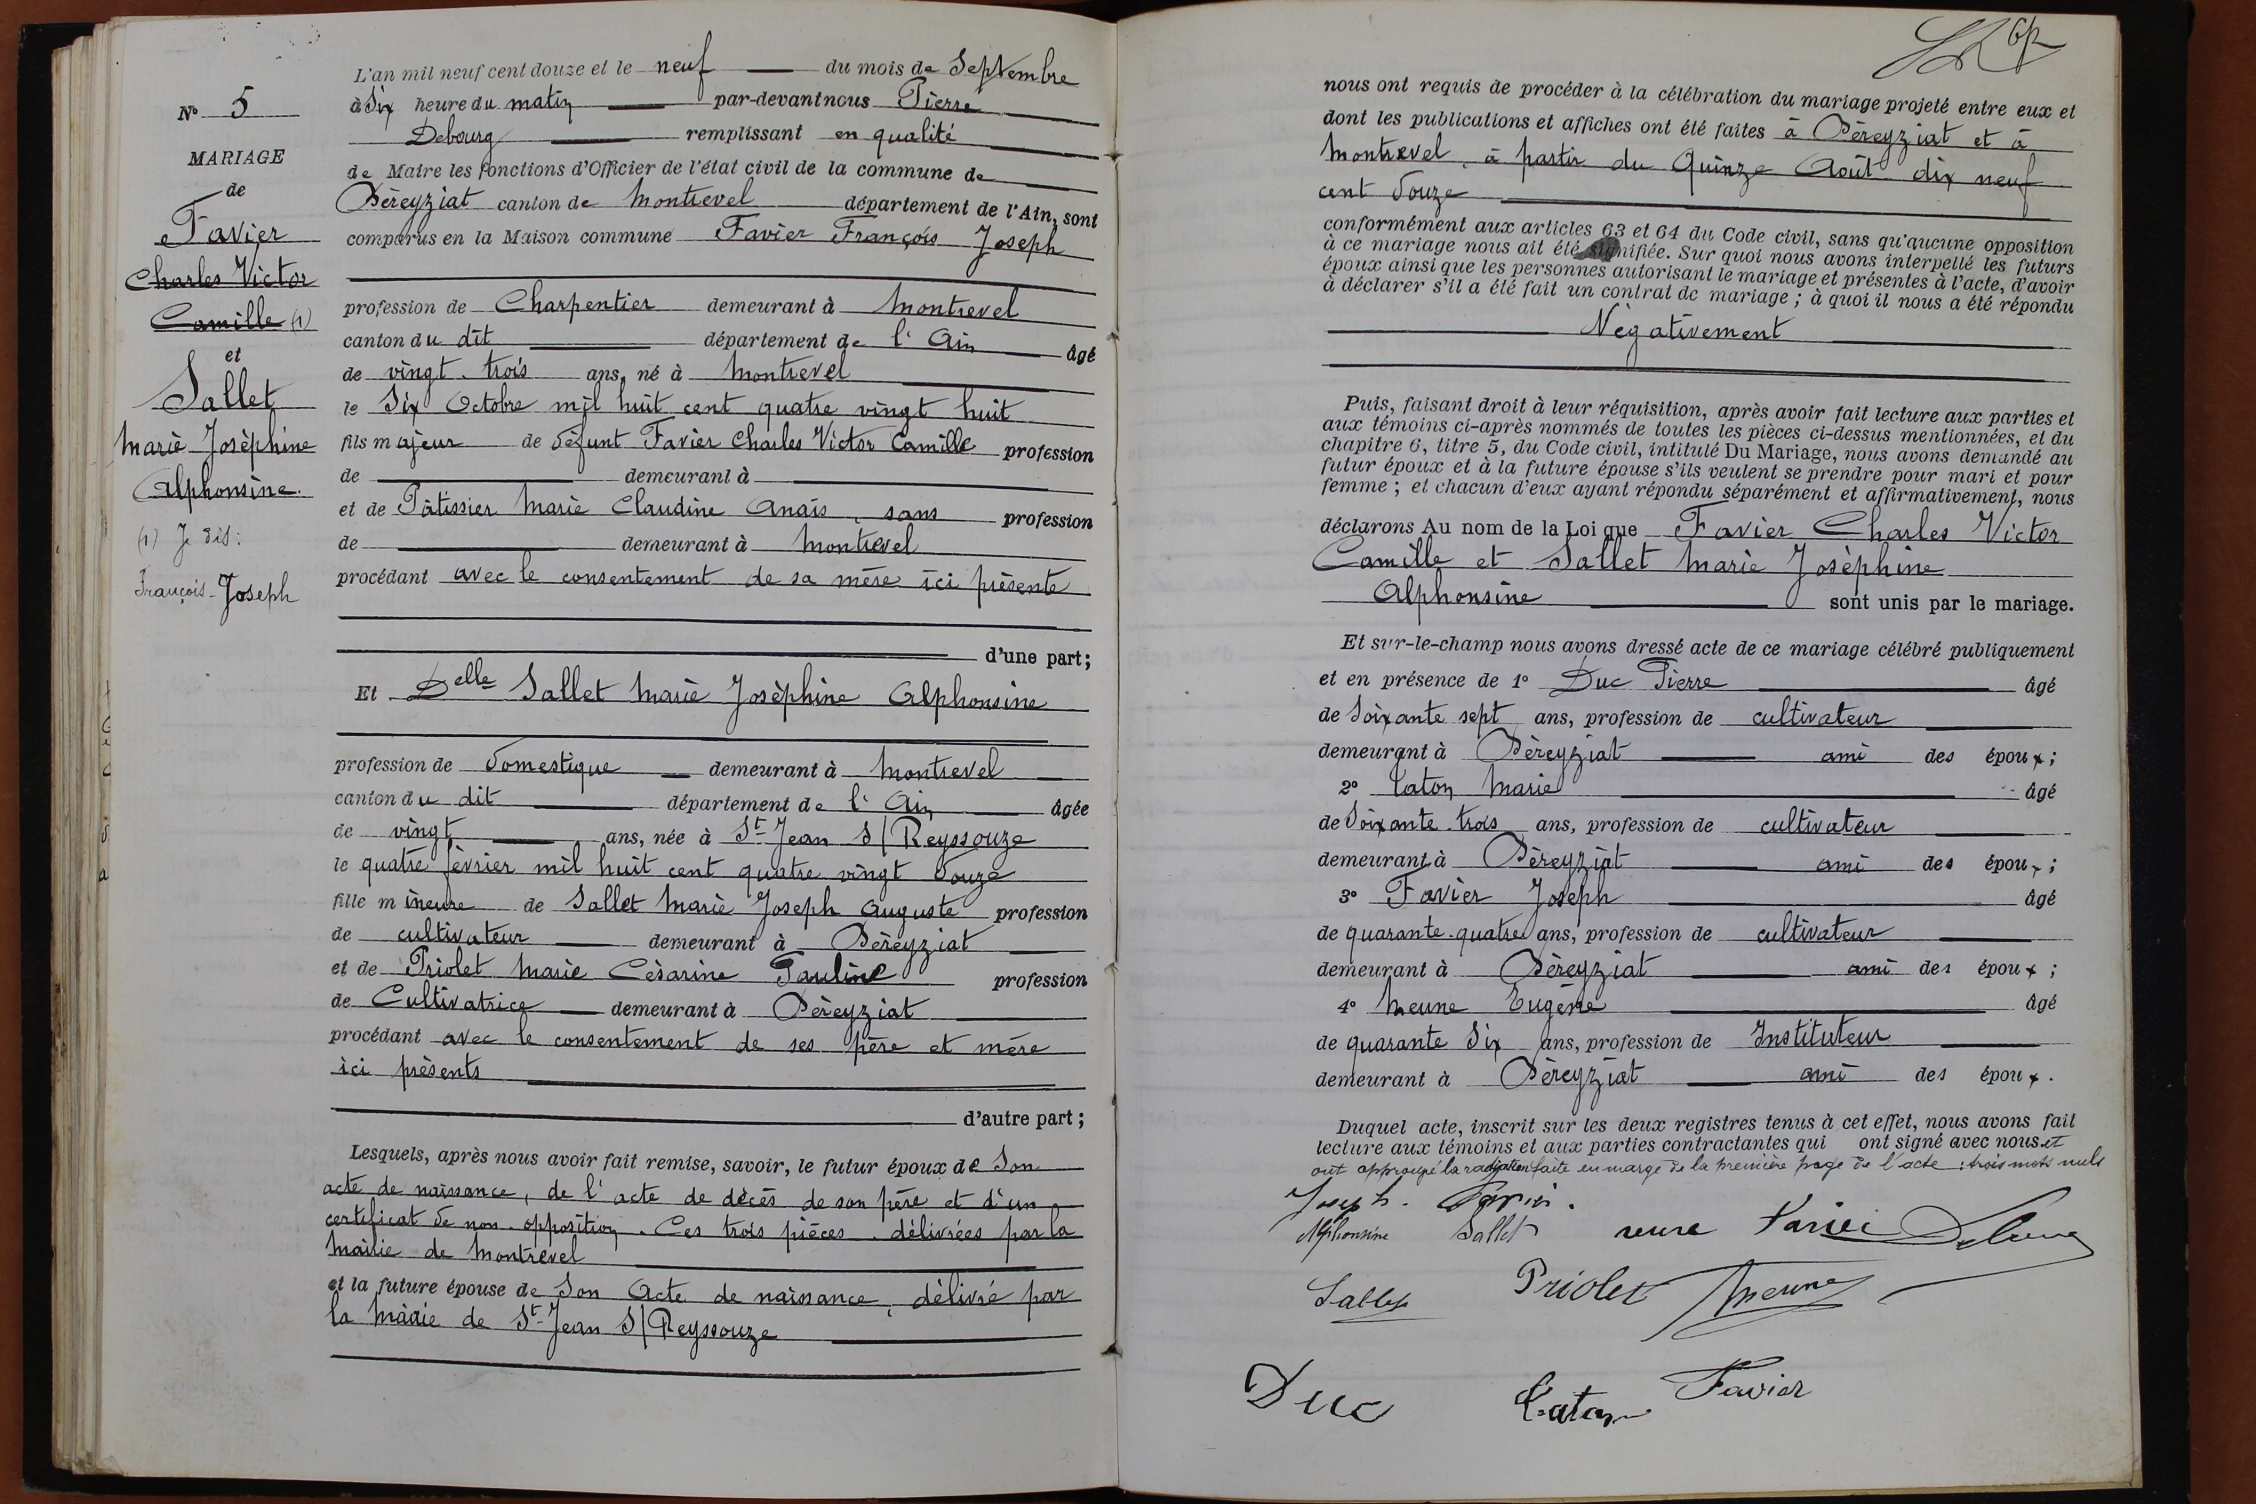 N° 5
MARIAGE
de
Favier
Charles Victor
Camille (1)
et
Sallet
Marie Joséphine
Alphonsine.
(1) Je dis:
François-Joseph
L'an mil neuf cent douze et le neuf du mois de Septembre
à Six heure du matin par-devant nous Pierre
Debourg remplissant en qualité
de Maire les fonctions d'Officier de l'état civil de la commune de
Béreyziat canton de Montrevel département de l'Ain, sont
comparus en la Maison commune Favier François Joseph
profession de Charpentier demeurant à Montrevel
canton du dit département de l'Ain âgé
de vingt-trois ans, né à Montrevel
le Six Octobre mil huit cent quatre vingt huit
fils majeur de défunt Favier Charles Victor Camille profession
de demeurant à
et de Pâtissier Marie Claudine Anaïs, sans profession
de demeurant à Montrevel
procédant avec le consentement de sa mère ici présente
d'une part;
Et Delle Sallet Marie Joséphine Alphonsine
profession de domestique demeurant à Montrevel
canton du dit département de l'Ain âgée
de vingt ans, née à St-Jean S/Reyssouze
le quatre février mil huit cent quatre vingt douze
fille mineure de Sallet Marie Joseph Auguste profession
de cultivateur demeurant à Béreyziat
et de Priolet Marie Césarine Pauline profession
de Cultivatrice demeurant à Béreyziat
procédant avec le consentement de ses père et mère
ici présents
d'autre part;
Lesquels, après nous avoir fait remise, savoir, le futur époux de Son
acte de naissance, de l'acte de décès de son père et d'un
certificat de non-opposition. Ces trois pièces délivrées par la
Mairie de Montrevel
et la future épouse de Son Acte de naissance, délivré par
la Mairie de St-Jean S/Reyssouze
nous ont requis de procéder à la célébration du mariage projeté entre eux et
dont les publications et affiches ont été faites à Béreyziat et à
Montrevel, à partir du Quinze Août dix neuf
cent douze
conformément aux articles 63 et 64 du Code civil, sans qu'aucune opposition
à ce mariage nous ait été signifiée. Sur quoi nous avons interpellé les futurs
époux ainsi que les personnes autorisant le mariage et présentes à l'acte, d'avoir
à déclarer s'il a été fait un contrat de mariage; à quoi il nous a été répondu
Négativement
Puis, faisant droit à leur réquisition, après avoir fait lecture aux parties et
aux témoins ci-après nommés de toutes les pièces ci-dessus mentionnées, et du
chapitre 6, titre 5, du Code civil, intitulé Du Mariage, nous avons demandé au
futur époux et à la future épouse s'ils veulent se prendre pour mari et pour
femme; et chacun d'eux ayant répondu séparément et affirmativement, nous
déclarons Au nom de la Loi que Favier Charles Victor
Camille et Sallet Marie Joséphine
Alphonsine sont unis par le mariage.
Et sur-le-champ nous avons dressé acte de ce mariage célébré publiquement
et en présence de 1° Duc Pierre âgé
de Soixante sept ans, profession de cultivateur
demeurant à Béreyziat ami des époux;
2° Caton Marie âgé
de Soixante-trois ans, profession de cultivateur
demeurant à Béreyziat ami des époux;
3° Favier Joseph âgé
de quarante-quatre ans, profession de cultivateur
demeurant à Béreyziat ami des époux;
4° Meune Eugène âgé
de quarante Six ans, profession de Instituteur
demeurant à Béreyziat ami des époux.
Duquel acte, inscrit sur les deux registres tenus à cet effet, nous avons fait
lecture aux témoins et aux parties contractantes qui ont signé avec nous et
ont approuvé la radiation faite en marge de la première page de l'acte : trois mots nuls
Joseph. Favier.
Alphonsine Sallet veuve Favier Debourg
Sallet Priolet Meune
Duc Caton Favier